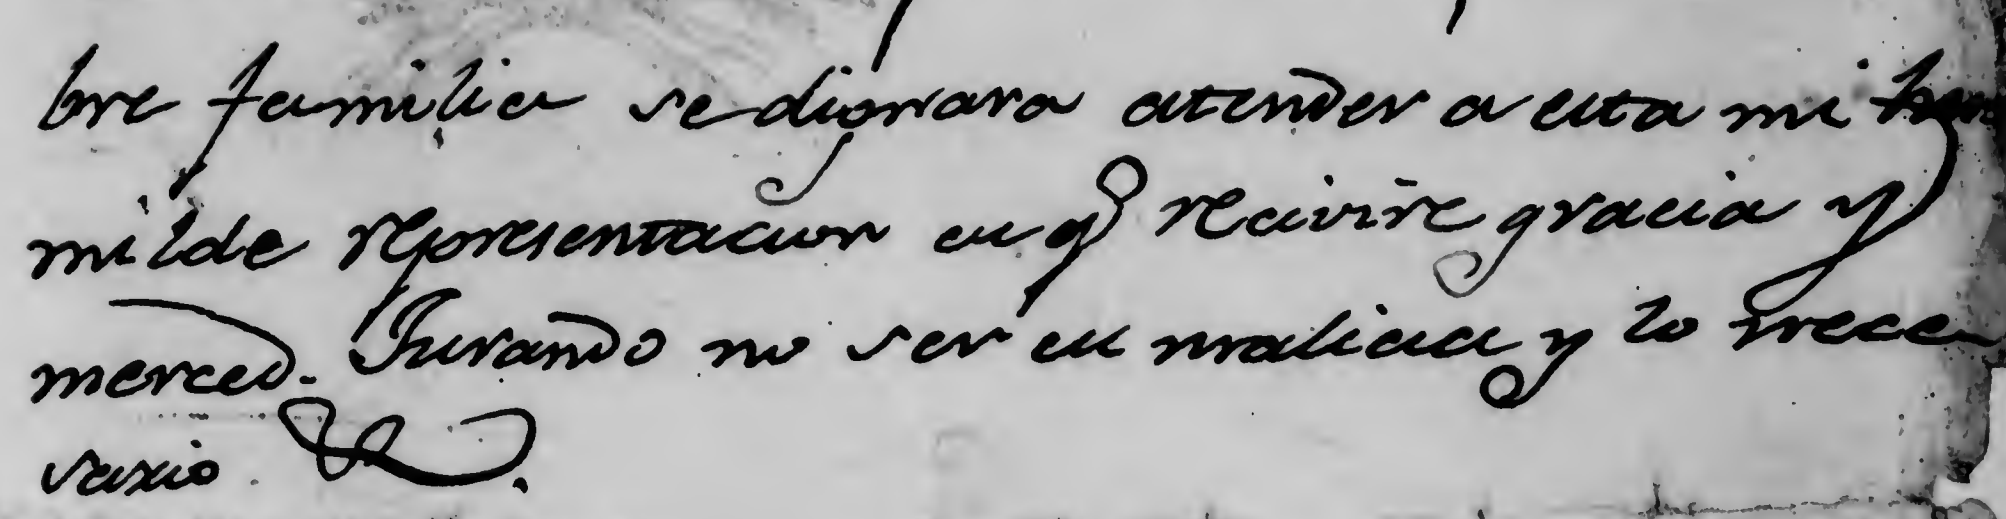 bre familia se dignara atender a esta mi hu
milde representacion en q recivire gracia y
merced. Jurando no ser en malicia y lo nece
sario